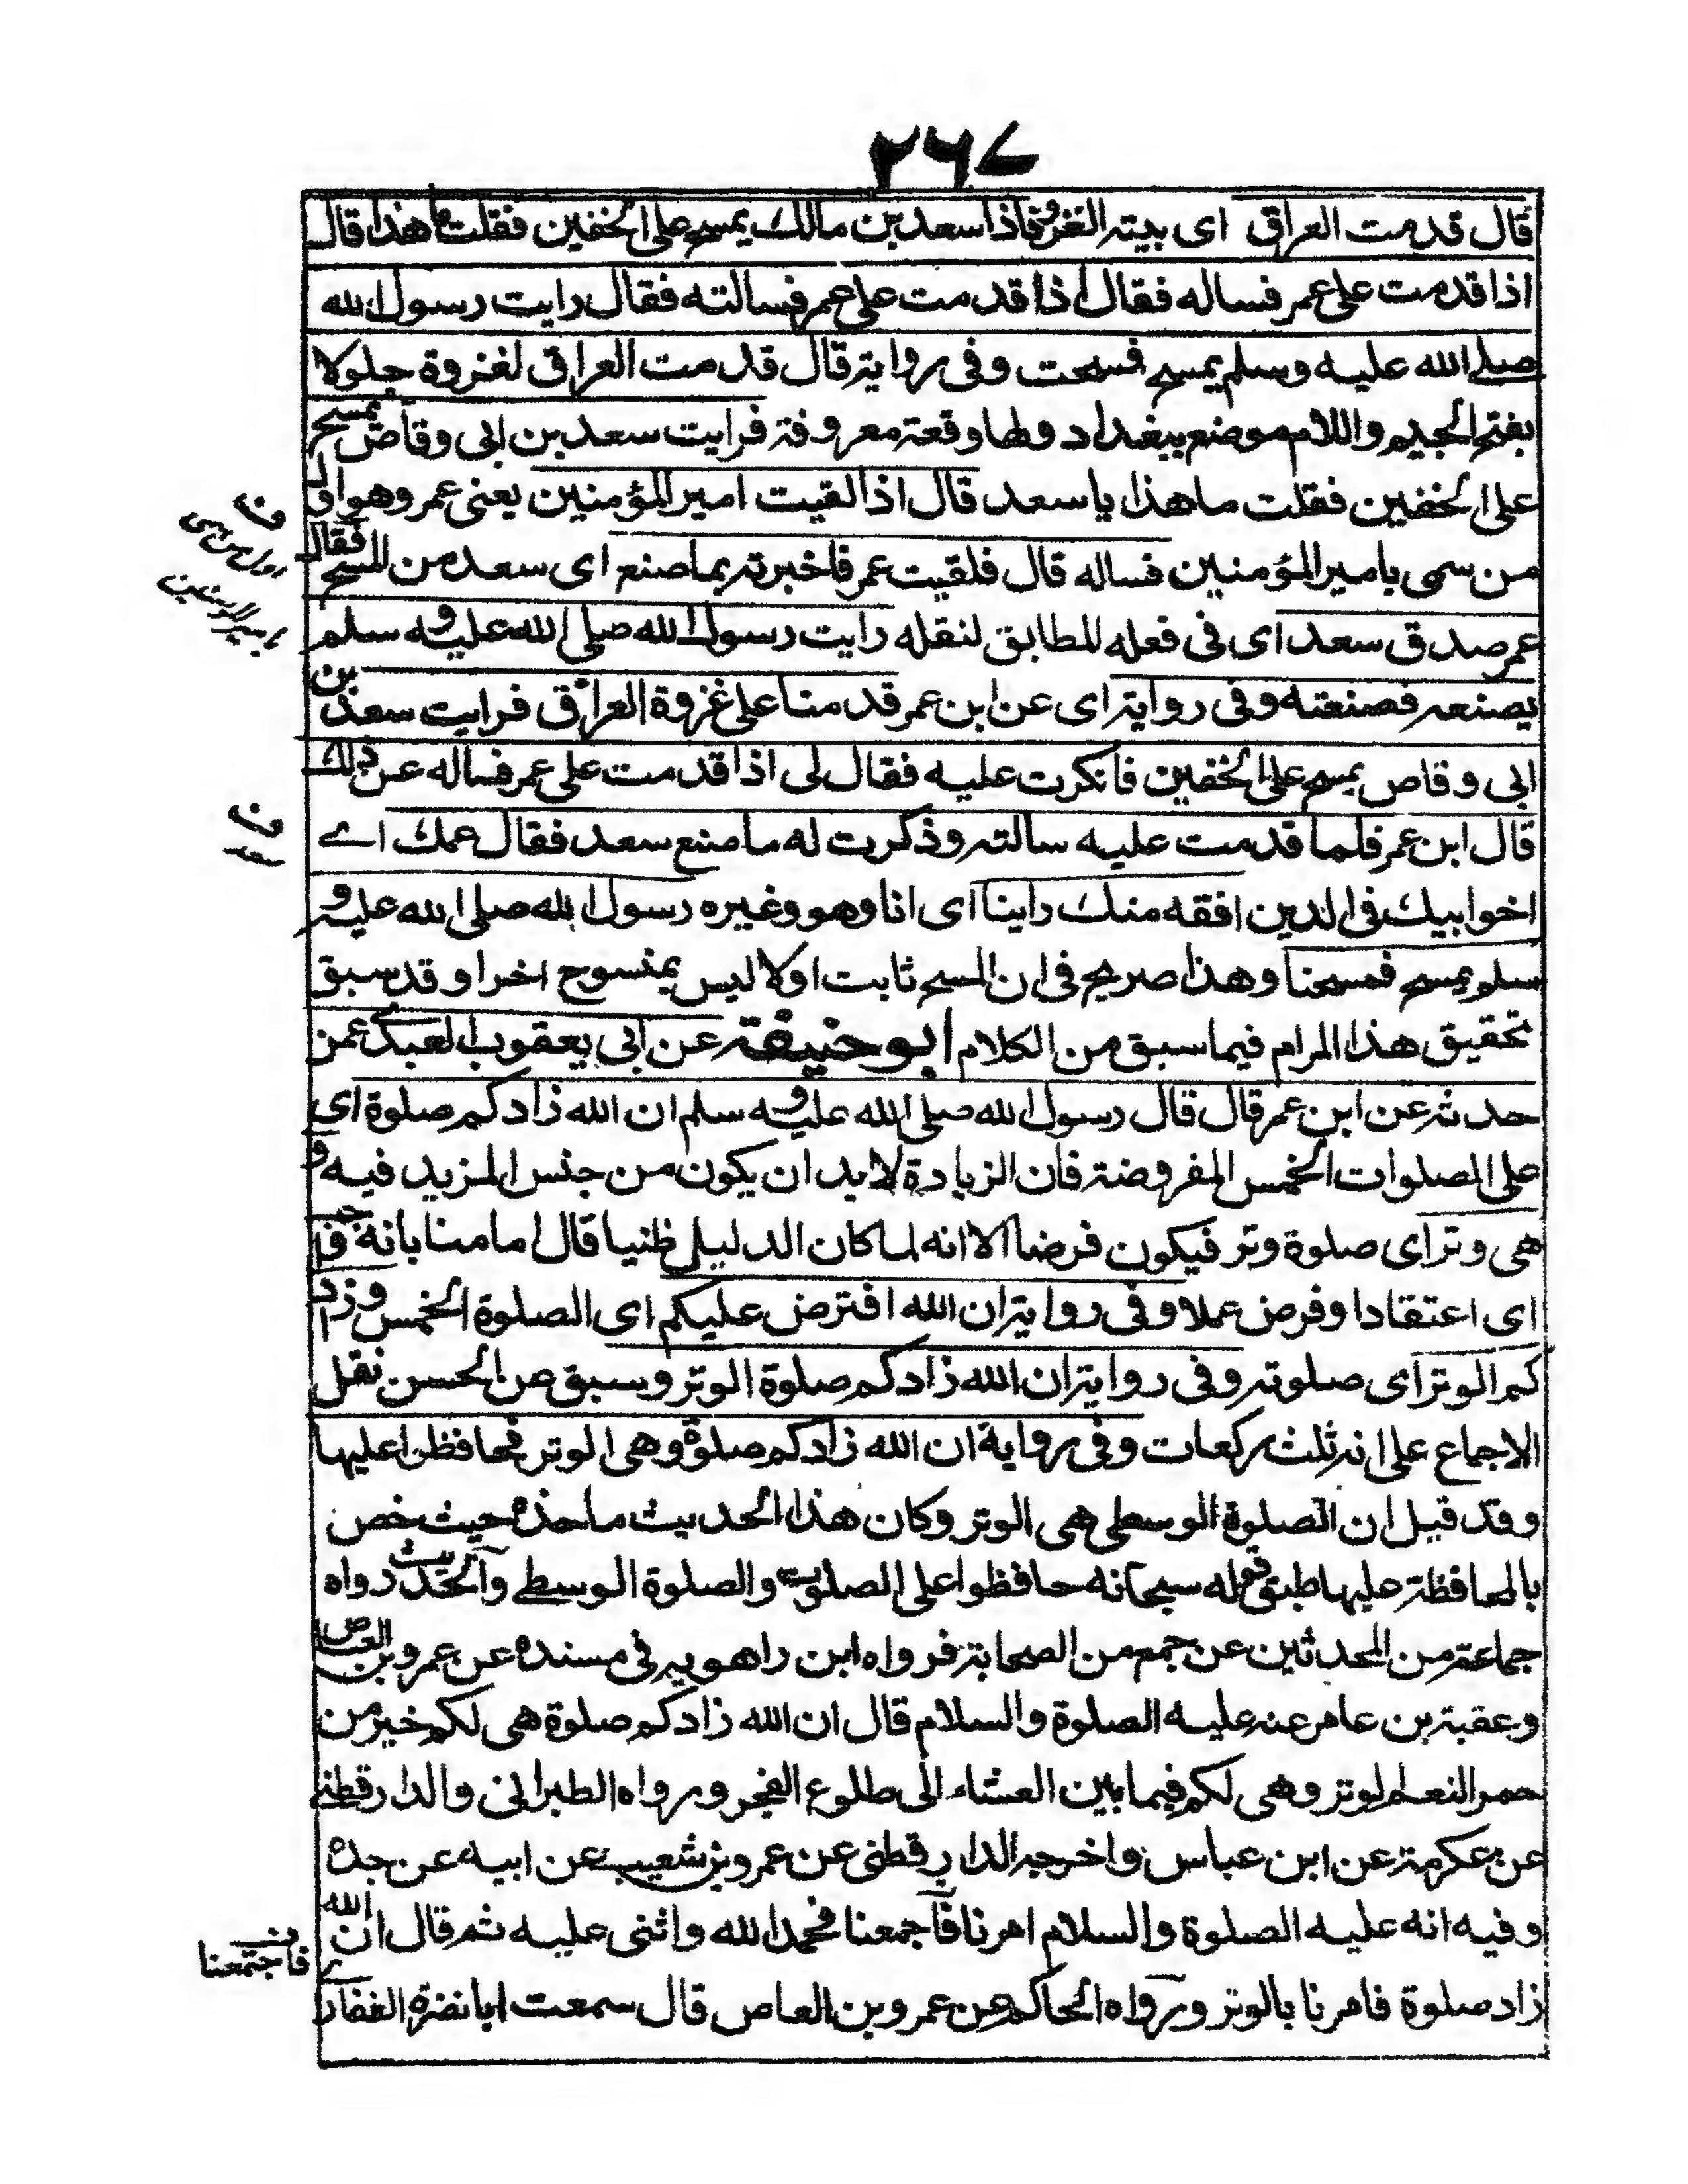 ٢٦٧
قال قدمت العراق اى بيته الغزو فاذا سعد بن مالك يمسح على الخفين فقلت ما هذا قال
اذا قدمت على عمر فساله فقال اذا قدمت على عمر فسالته فقال رايت رسول الله
صلى الله عليه وسلم يمسح فمسحت وفى رواية قال قدمت العراق لغزوة جلولا
بفتح الجيم واللام موضع ببغداد ولها وقعة معروفة فرايت سعد بن ابى وقاص يمسح
على الخفين فقلت ما هذا يا سعد قال اذا لقيت امير المؤمنين يعنى عمر وهو اول
من سمى بامير المؤمنين فساله قال فلقيت عمر فاخبرته بما صنع اى سعد من المسح فقال
عمر صدق سعد اى فى فعله المطابق لنقله رايت رسول الله صلى الله عليه وسلم
يصنعه فصنعته وفى رواية اى عن ابن عمر قدمنا على غزوة العراق فرايت سعد بن
ابى وقاص يمسح على الخفين فانكرت عليه فقال لى اذا قدمت على عمر فساله عن ذلك
قال ابن عمر فلما قدمت عليه سالته وذكرت له ما صنع سعد فقال عمك اے
اخو ابيك فى الدين افقه منك راينا اى انا وهو وغيره رسول الله صلى الله عليه و
سلم يمسح فمسحنا وهذا صريح فى ان المسح ثابت اولا ليس بمنسوخ اخرا وقد سبق
تحقيق هذا المرام فيما سبق من الكلام ابو حنيفة عن ابى يعقوب العبدى عمن
حدثه عن ابن عمر قال قال رسول الله صلى الله عليه وسلم ان الله زادكم صلوة اى
على الصلوات الخمس المفروضة فان الزيادة لا بد ان يكون من جنس المزيد فيه و
هى وتر اى صلوة وتر فيكون فرضا الا انه لما كان الدليل ظنيا قال امامنا بانه واجب
اى اعتقادا وفرض عملا وفى رواية ان الله افترض عليكم اى الصلوة الخمس وزاد
كم الوتر اى صلوته وفى رواية ان الله زادكم صلوة الوتر وسبق عن الحسن نقل
الاجماع على انه ثلث ركعات وفى رواية ان الله زادكم صلوة وهى الوتر فحافظوا عليها
وقد قيل ان الصلوة الوسطى هى الوتر وكان هذا الحديث ماخذه حيث خص
بالمحافظة عليها طبق قوله سبحانه حافظوا على الصلوت والصلوة الوسطى والحديث رواه
جماعة من المحدثين عن جمع من الصحابة فرواه ابن راهويه فى مسنده عن عمرو بن العاص
وعقبة بن عامر عنه عليه الصلوة والسلام قال ان الله زادكم صلوة هى لكم خير من
حمر النعم الوتر وهى لكم فيما بين العشاء الى طلوع الفجر ورواه الطبرانى والدارقطنى
عن عكرمة عن ابن عباس واخرجه الدارقطنى عن عمرو بن شعيب عن ابيه عن جده
وفيه انه عليه الصلوة والسلام امرنا فاجمعنا فحمد الله واثنى عليه ثم قال ان الله
زاد صلوة فامرنا بالوتر ورواه الحاكم عن عمرو بن العاص قال سمعت ابا نضرة الغفارى
اول من سمى
بامير المومنين
سعد
فاجتمعنا